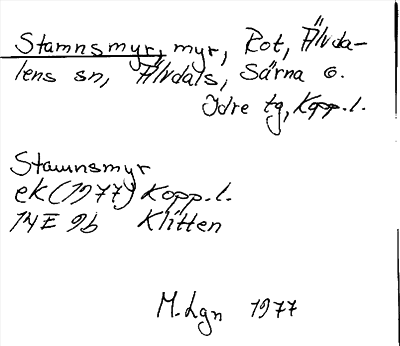 Stamnsmyr, myr, Rot, Älvda-
lens sn, Älvdals, Särna o.
Idre tg, Kopp.l.
Stamnsmyr
ek (1977) Kopp.l.
14E 9b Klitten
M.Lgn 1977